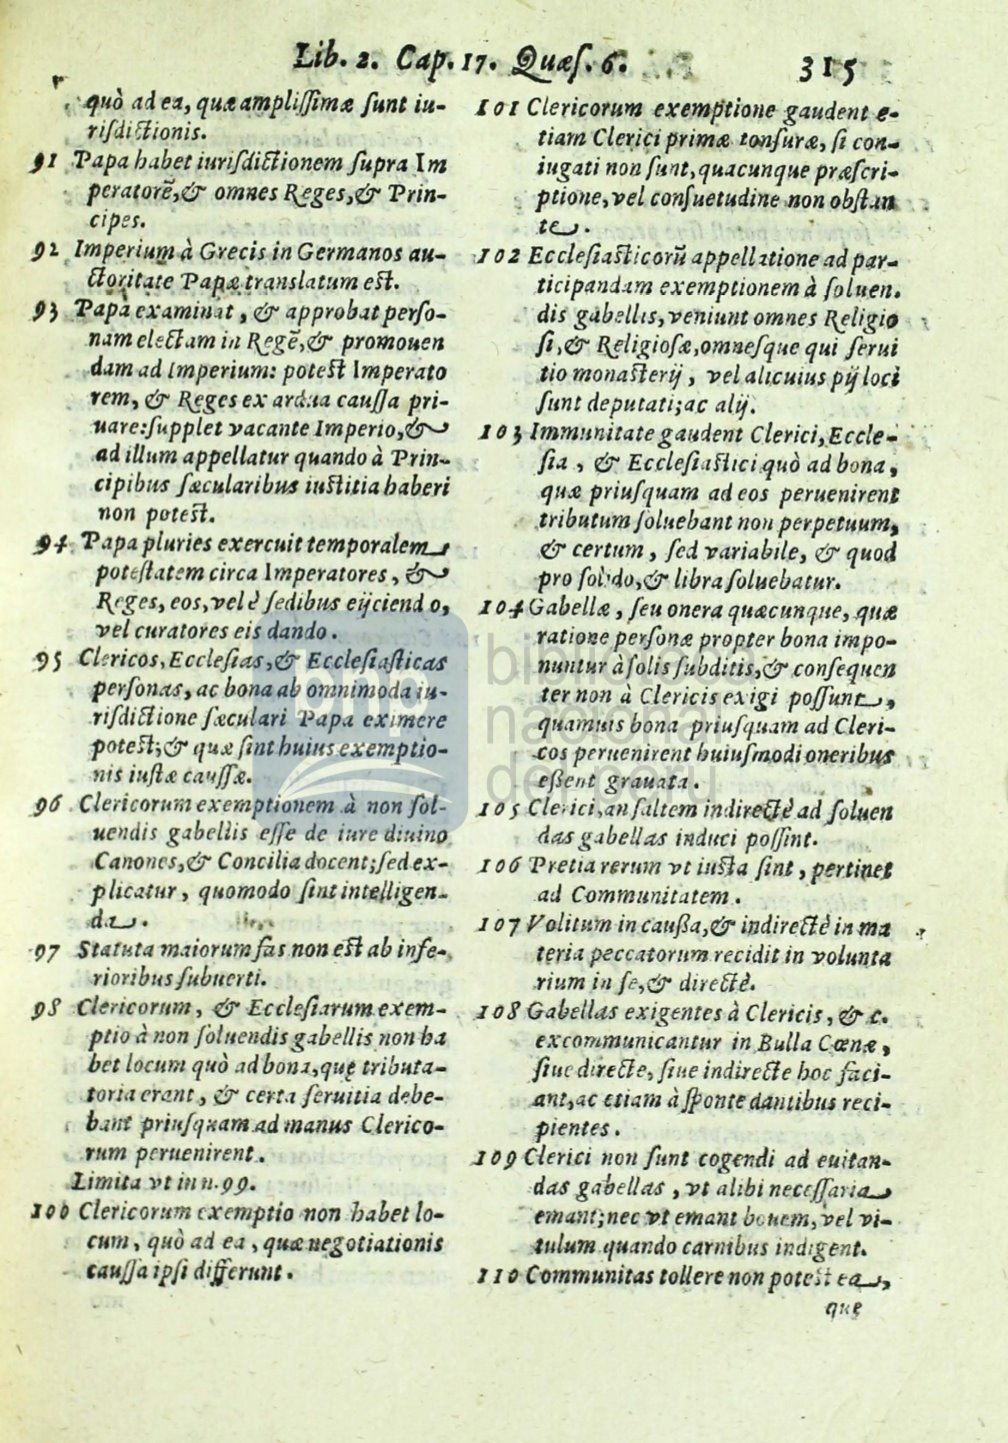 Lib. 2. Cap. 17. Quæſ. 6. 315
quò ad ea, quæ ampliſſimæ ſunt iu-
riſdictionis.
91 Papa habet iuriſdictionem ſupra Im
peratorẽ, & omnes Reges, & Prin-
cipes.
92 Imperium à Grecis in Germanos au-
ctoritate Papæ translatum eſt.
93 Papa examinat, & approbat perſo-
nam electam in Regẽ, & promouen
dam ad Imperium: poteſt Imperato
rem, & Reges ex ardua cauſſa pri-
uare: ſupplet vacante Imperio, &
ad illum appellatur quando à Prin-
cipibus ſæcularibus iuſtitia haberi
non poteſt.
94 Papa pluries exercuit temporalem
poteſtatem circa Imperatores, &
Reges, eos, vel è ſedibus eijciendo,
vel curatores eis dando.
95 Clericos, Eccleſias, & Eccleſiaſticas
perſonas, ac bona ab omnimoda iu-
riſdictione ſæculari Papa eximere
poteſt; & quæ ſint huius exemptio-
nis iuſtæ cauſſæ.
96 Clericorum exemptionem à non ſol-
uendis gabellis eſſe de iure diuino
Canones, & Concilia docent; ſed ex-
plicatur, quomodo ſint intelligen-
da.
97 Statuta maiorum fas non eſt ab infe-
rioribus ſubuerti.
98 Clericorum, & Eccleſiarum exem-
ptio à non ſoluendis gabellis non ha
bet locum quò ad bona, quę tributa-
toria erant, & certa ſeruitia debe-
bant priuſquam ad manus Clerico-
rum peruenirent.
Limita vt in n. 99.
100 Clericorum exemptio non habet lo-
cum, quò ad ea, quæ negotiationis
cauſſa ipſi differunt.
101 Clericorum exemptione gaudent e-
tiam Clerici primæ tonſuræ, ſi con-
iugati non ſunt, quacunque præſcri-
ptione, vel conſuetudine non obſtan
te.
102 Eccleſiaſticorũ appellatione ad par-
ticipandam exemptionem à ſoluen.
dis gabellis, veniunt omnes Religio
ſi, & Religioſæ, omneſque qui ſerui
tio monaſterij, vel alicuius pij loci
ſunt deputati; ac alij.
103 Immunitate gaudent Clerici, Eccle-
ſia, & Eccleſiaſtici quò ad bona,
quæ priuſquam ad eos peruenirent
tributum ſoluebant non perpetuum,
& certum, ſed variabile, & quod
pro ſolido, & libra ſoluebatur.
104 Gabellæ, ſeu onera quæcunque, quæ
ratione perſonæ propter bona impo-
nuntur à ſolis ſubditis, & conſequen
ter non à Clericis exigi poſſunt,
quamuis bona priuſquam ad Cleri-
cos peruenirent huiuſmodi oneribus
eßent grauata.
105 Clerici, an ſaltem indirectè ad ſoluen
das gabellas induci poſſint.
106 Pretia rerum vt iuſta ſint, pertinet
ad Communitatem.
107 Volitum in caußa, & indirectè in ma
teria peccatorum recidit in volunta
rium in ſe, & directè.
108 Gabellas exigentes à Clericis, & c.
excommunicantur in Bulla Cœnæ,
ſiue directe, ſiue indirecte hoc faci-
ant, ac etiam à ſponte dantibus reci-
pientes.
109 Clerici non ſunt cogendi ad euitan-
das gabellas, vt alibi neceſſaria
emant; nec vt emant bouem, vel vi-
tulum quando carnibus indigent.
110 Communitas tollere non poteſt ea,
que